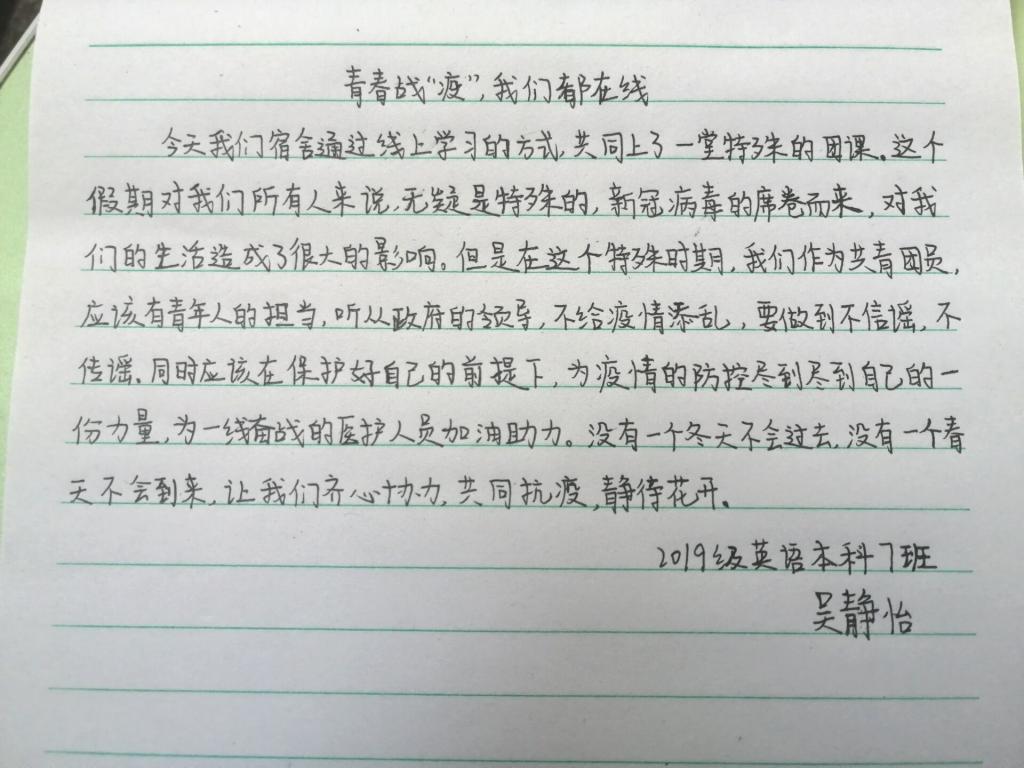 青春战“疫”,我们都在线
今天我们宿舍通过线上学习的方式,共同上了一堂特殊的团课。这个
假期对我们所有人来说,无疑是特殊的,新冠病毒的席卷而来,对我
们的生活造成了很大的影响。但是在这个特殊时期,我们作为共青团员,
应该有青年人的担当,听从政府的领导,不给疫情添乱,要做到不信谣,不
传谣。同时应该在保护好自己的前提下,为疫情的防控尽到尽到自己的一
份力量,为一线奋战的医护人员加油助力。没有一个冬天不会过去,没有一个春
天不会到来,让我们齐心协力,共同抗疫,静待花开。
2019级英语本科7班
吴静怡